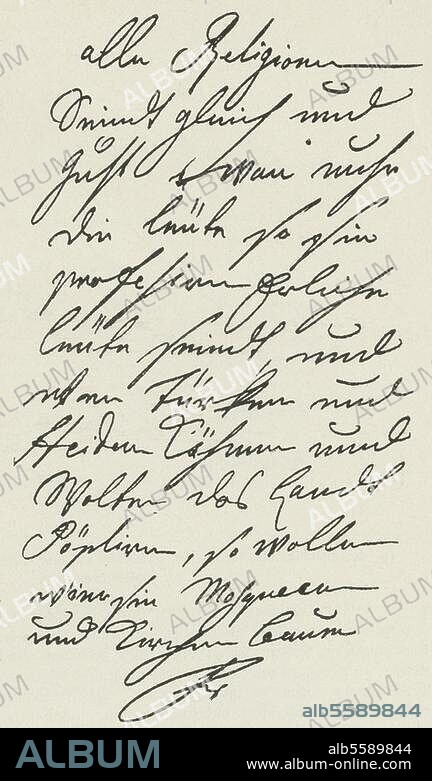 alle Religionen
Seindt gleich und
guht wan nuhr
die leüte so sie
profesiren Erliche
leüte seindt, und
wen Türken und
Heiden Kähmen und
Wolten das Landt
Pöpliren, so wollen
wier sie Mosqueen
und Kirchen bauen
alb5589844
ALBUM
alb5589844
www.album-online.com